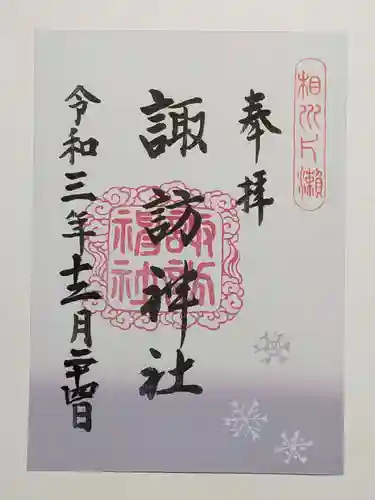 相州片瀬
奉拝
諏訪神社
諏訪神社
令和三年十二月二十四日